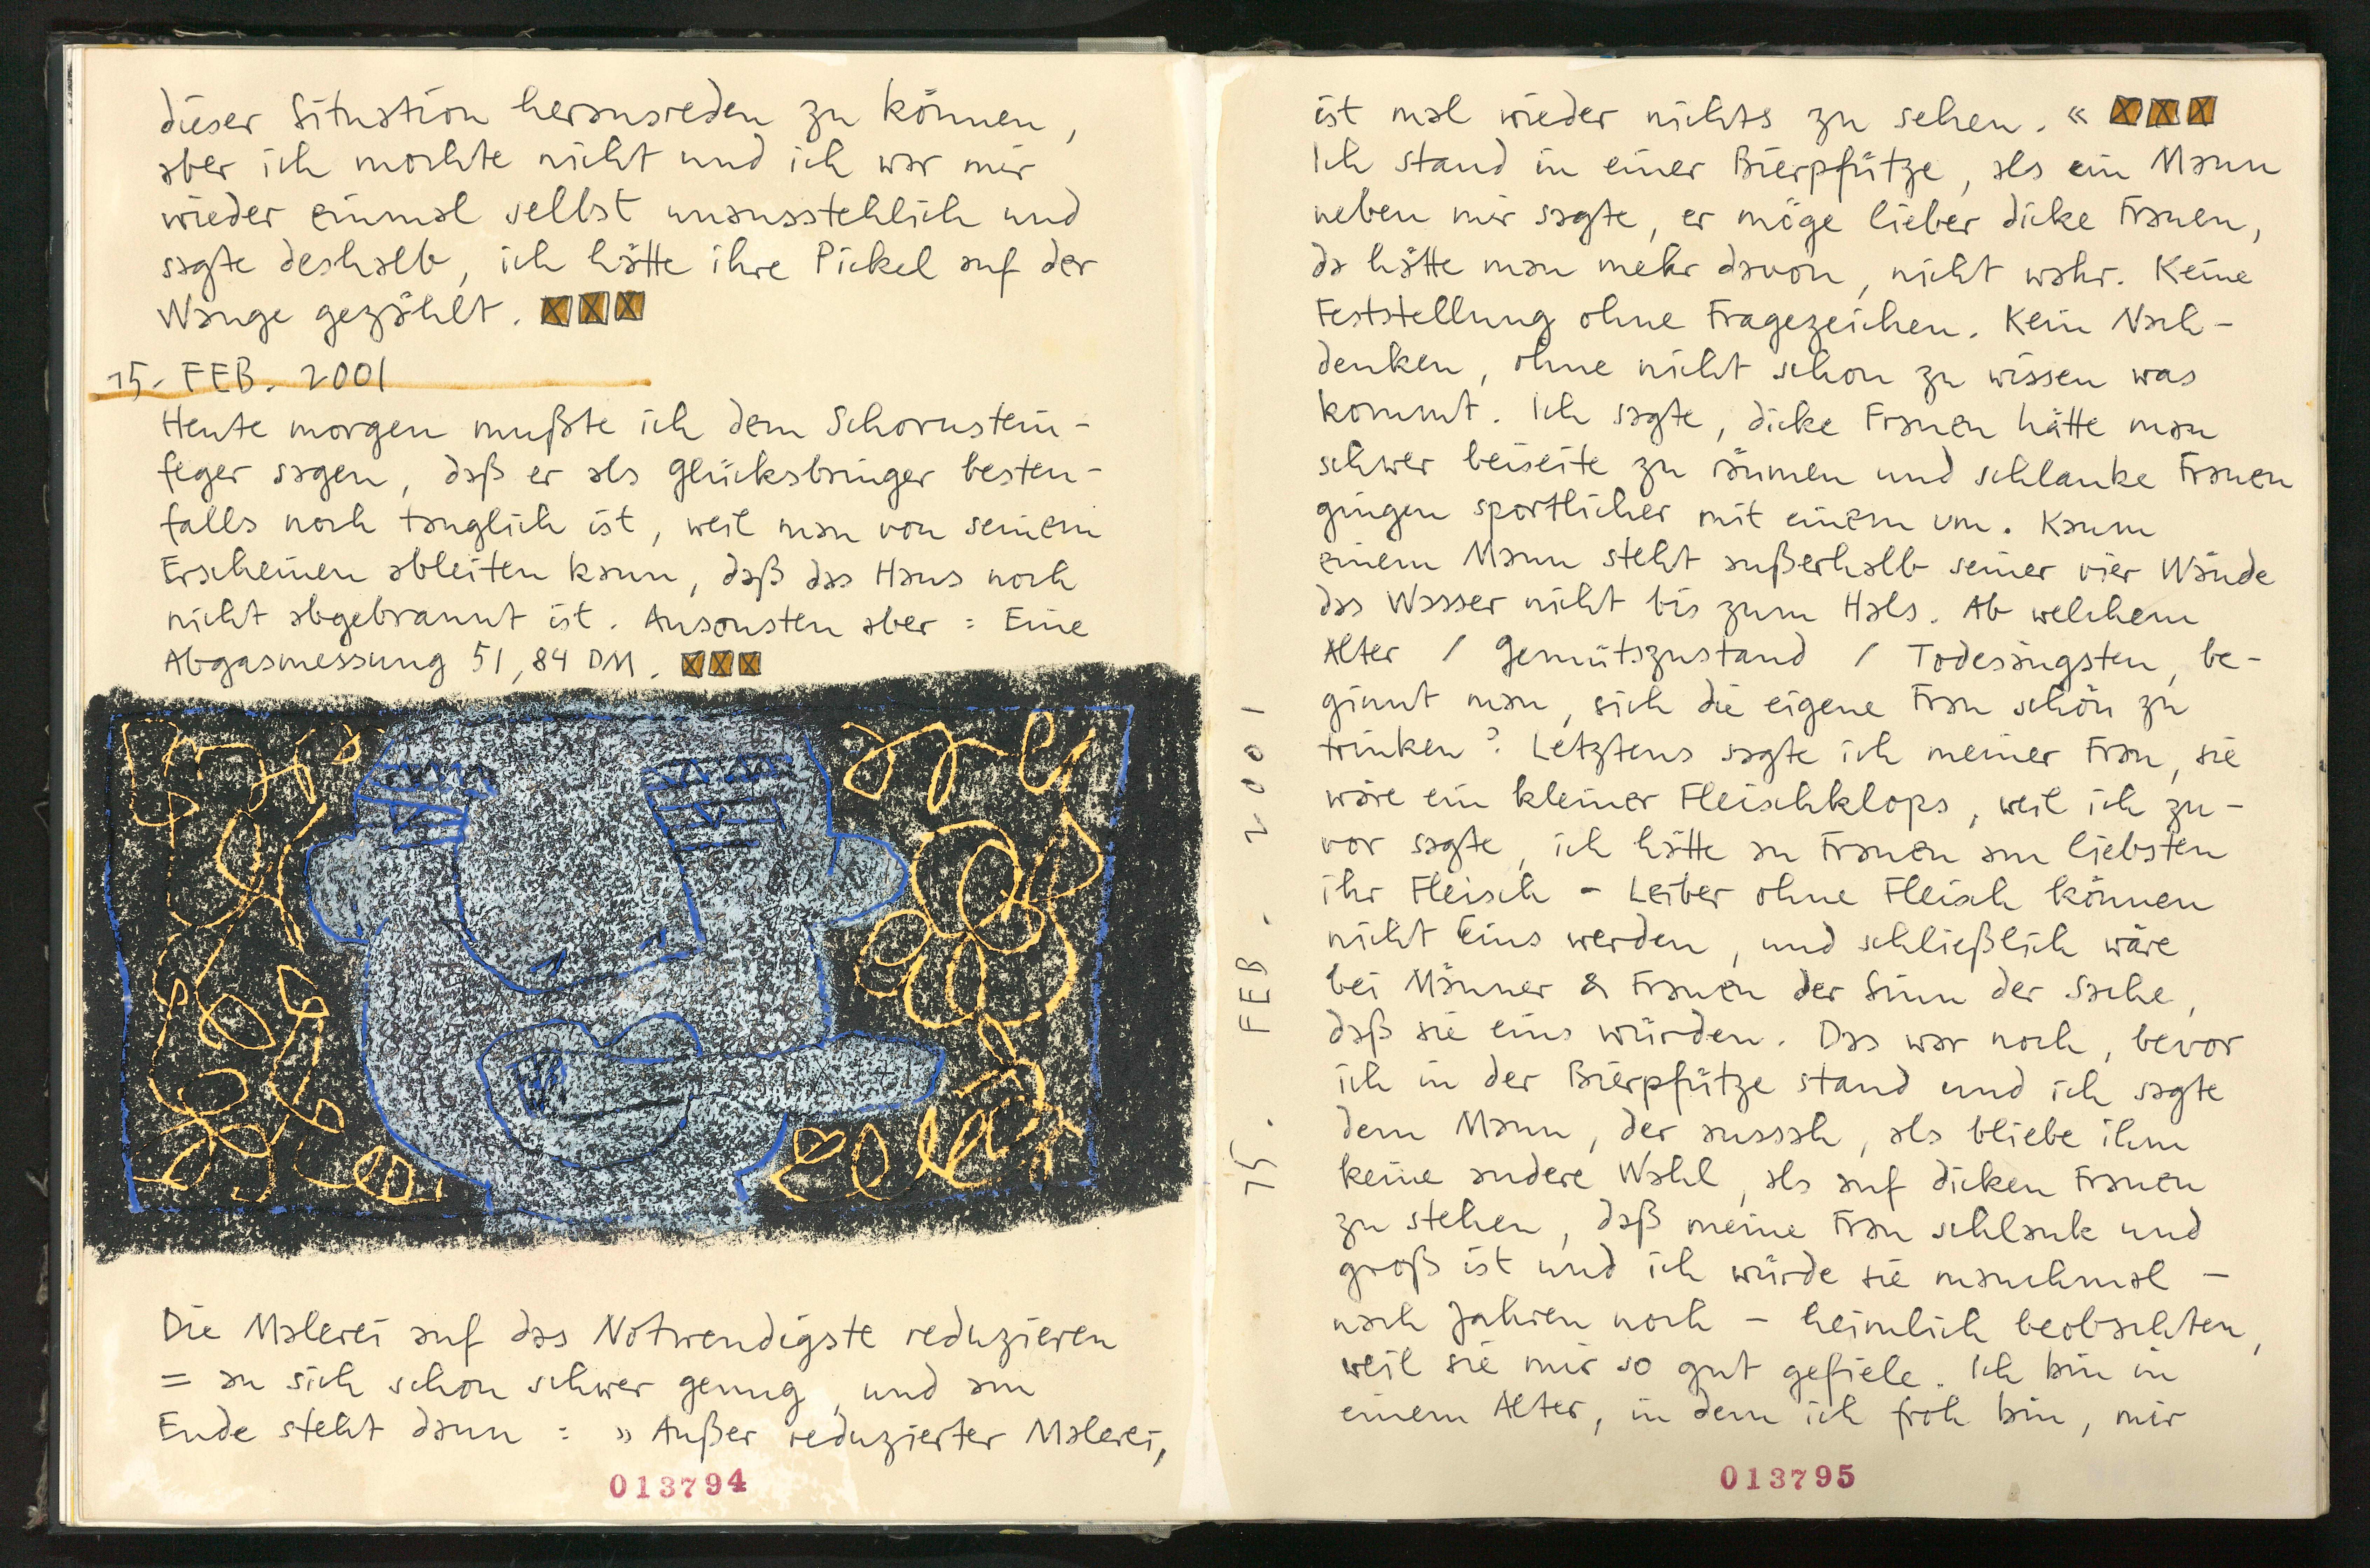 dieser Situation herausreden zu können,
aber ich mochte nicht und ich war mir
wieder einmal selbst unausstehlich und
sagte deshalb, ich hätte ihre Pickel auf der
Wange gezählt.
15. FEB. 2001
Heute morgen mußte ich dem Schornstein-
feger sagen, daß er als Glücksbringer besten-
falls noch tauglich ist, weil man von seinem
Erscheinen ableiten kann, daß das Haus noch
nicht abgebrannt ist. Ansonsten aber: Eine
Abgasmessung 51,84 DM.
Die Malerei auf das Notwendigste reduzieren
= an sich schon schwer genug, und am
Ende steht dann: »Außer reduzierter Malerei,
013794
ist mal wieder nichts zu sehen.«
Ich stand in einer Bierpfütze, als ein Mann
neben mir sagte, er möge lieber dicke Frauen,
da hätte man mehr davon, nicht wahr. Keine
Feststellung ohne Fragezeichen. Kein Nach-
denken, ohne nicht schon zu wissen was
kommt. Ich sagte, dicke Frauen hätte man
schwer beiseite zu räumen und schlanke Frauen
gingen sportlicher mit einem um. Kaum
einem Mann steht außerhalb seiner vier Wände
das Wasser nicht bis zum Hals. Ab welchem
Alter / Gemütszustand / Todesängsten, be-
ginnt man, sich die eigene Frau schön zu
trinken? Letztens sagte ich meiner Frau, sie
wäre ein kleiner Fleischklops, weil ich zu-
vor sagte, ich hätte an Frauen am liebsten
ihr Fleisch - Leiber ohne Fleisch können
nicht Eins werden, und schließlich wäre
bei Männer & Frauen der Sinn der Sache,
daß sie eins würden. Das war noch, bevor
ich in der Bierpfütze stand und ich sagte
dem Mann, der aussah, als bliebe ihm
keine andere Wahl, als auf dicken Frauen
zu stehen, daß meine Frau schlank und
groß ist und ich würde sie manchmal -
nach Jahren noch - heimlich beobachten,
weil sie mir so gut gefiele. Ich bin in
einem Alter, in dem ich froh bin, mir
15. FEB. 2001
013795